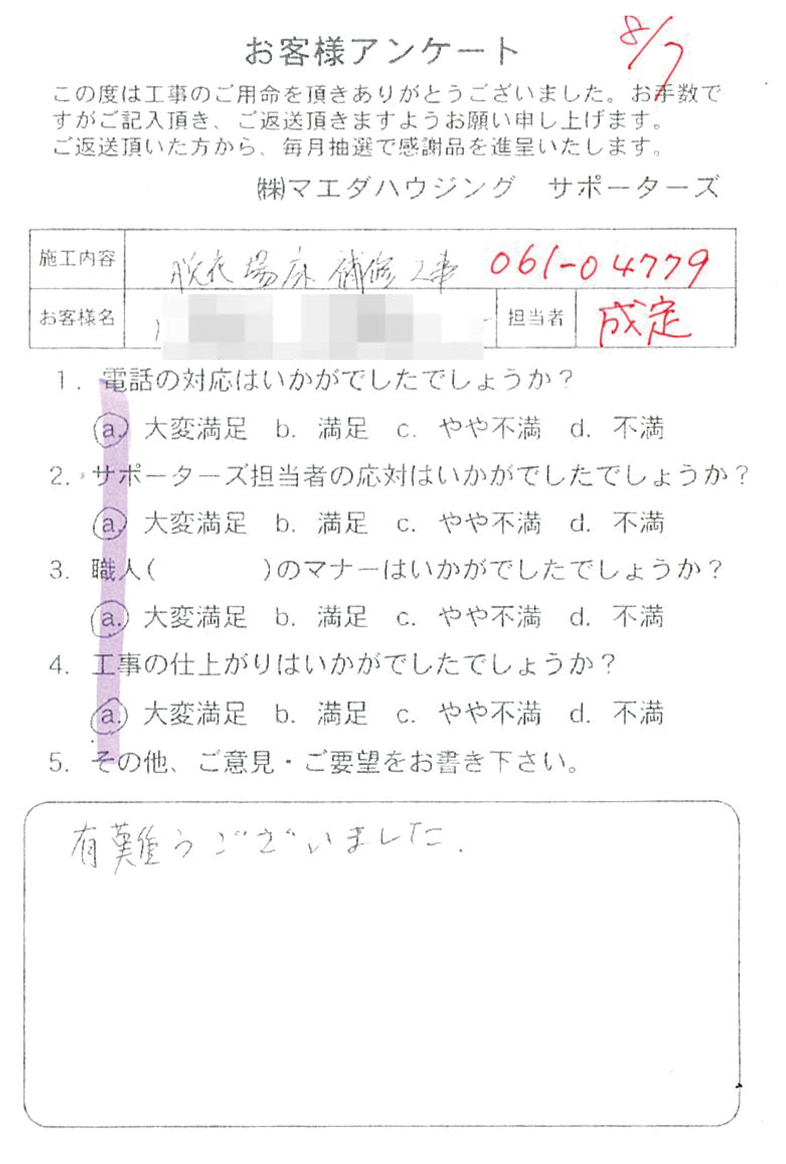 お客様アンケート
8/7
この度は工事のご用命を頂きありがとうございました。お手数で
すがご記入頂き、ご返送頂きますようお願い申し上げます。
ご返送頂いた方から、毎月抽選で感謝品を進呈いたします。
㈱マエダハウジング　サポーターズ
施工内容 脱衣場床補修工事 061-04779
お客様名 担当者 成定
1. 電話の対応はいかがでしたでしょうか？
a. 大変満足 b. 満足 c. やや不満 d. 不満
2. サポーターズ担当者の応対はいかがでしたでしょうか？
a. 大変満足 b. 満足 c. やや不満 d. 不満
3. 職人(　　　　)のマナーはいかがでしたでしょうか？
a. 大変満足 b. 満足 c. やや不満 d. 不満
4. 工事の仕上がりはいかがでしたでしょうか？
a. 大変満足 b. 満足 c. やや不満 d. 不満
5. その他、ご意見・ご要望をお書き下さい。
有難うございました.